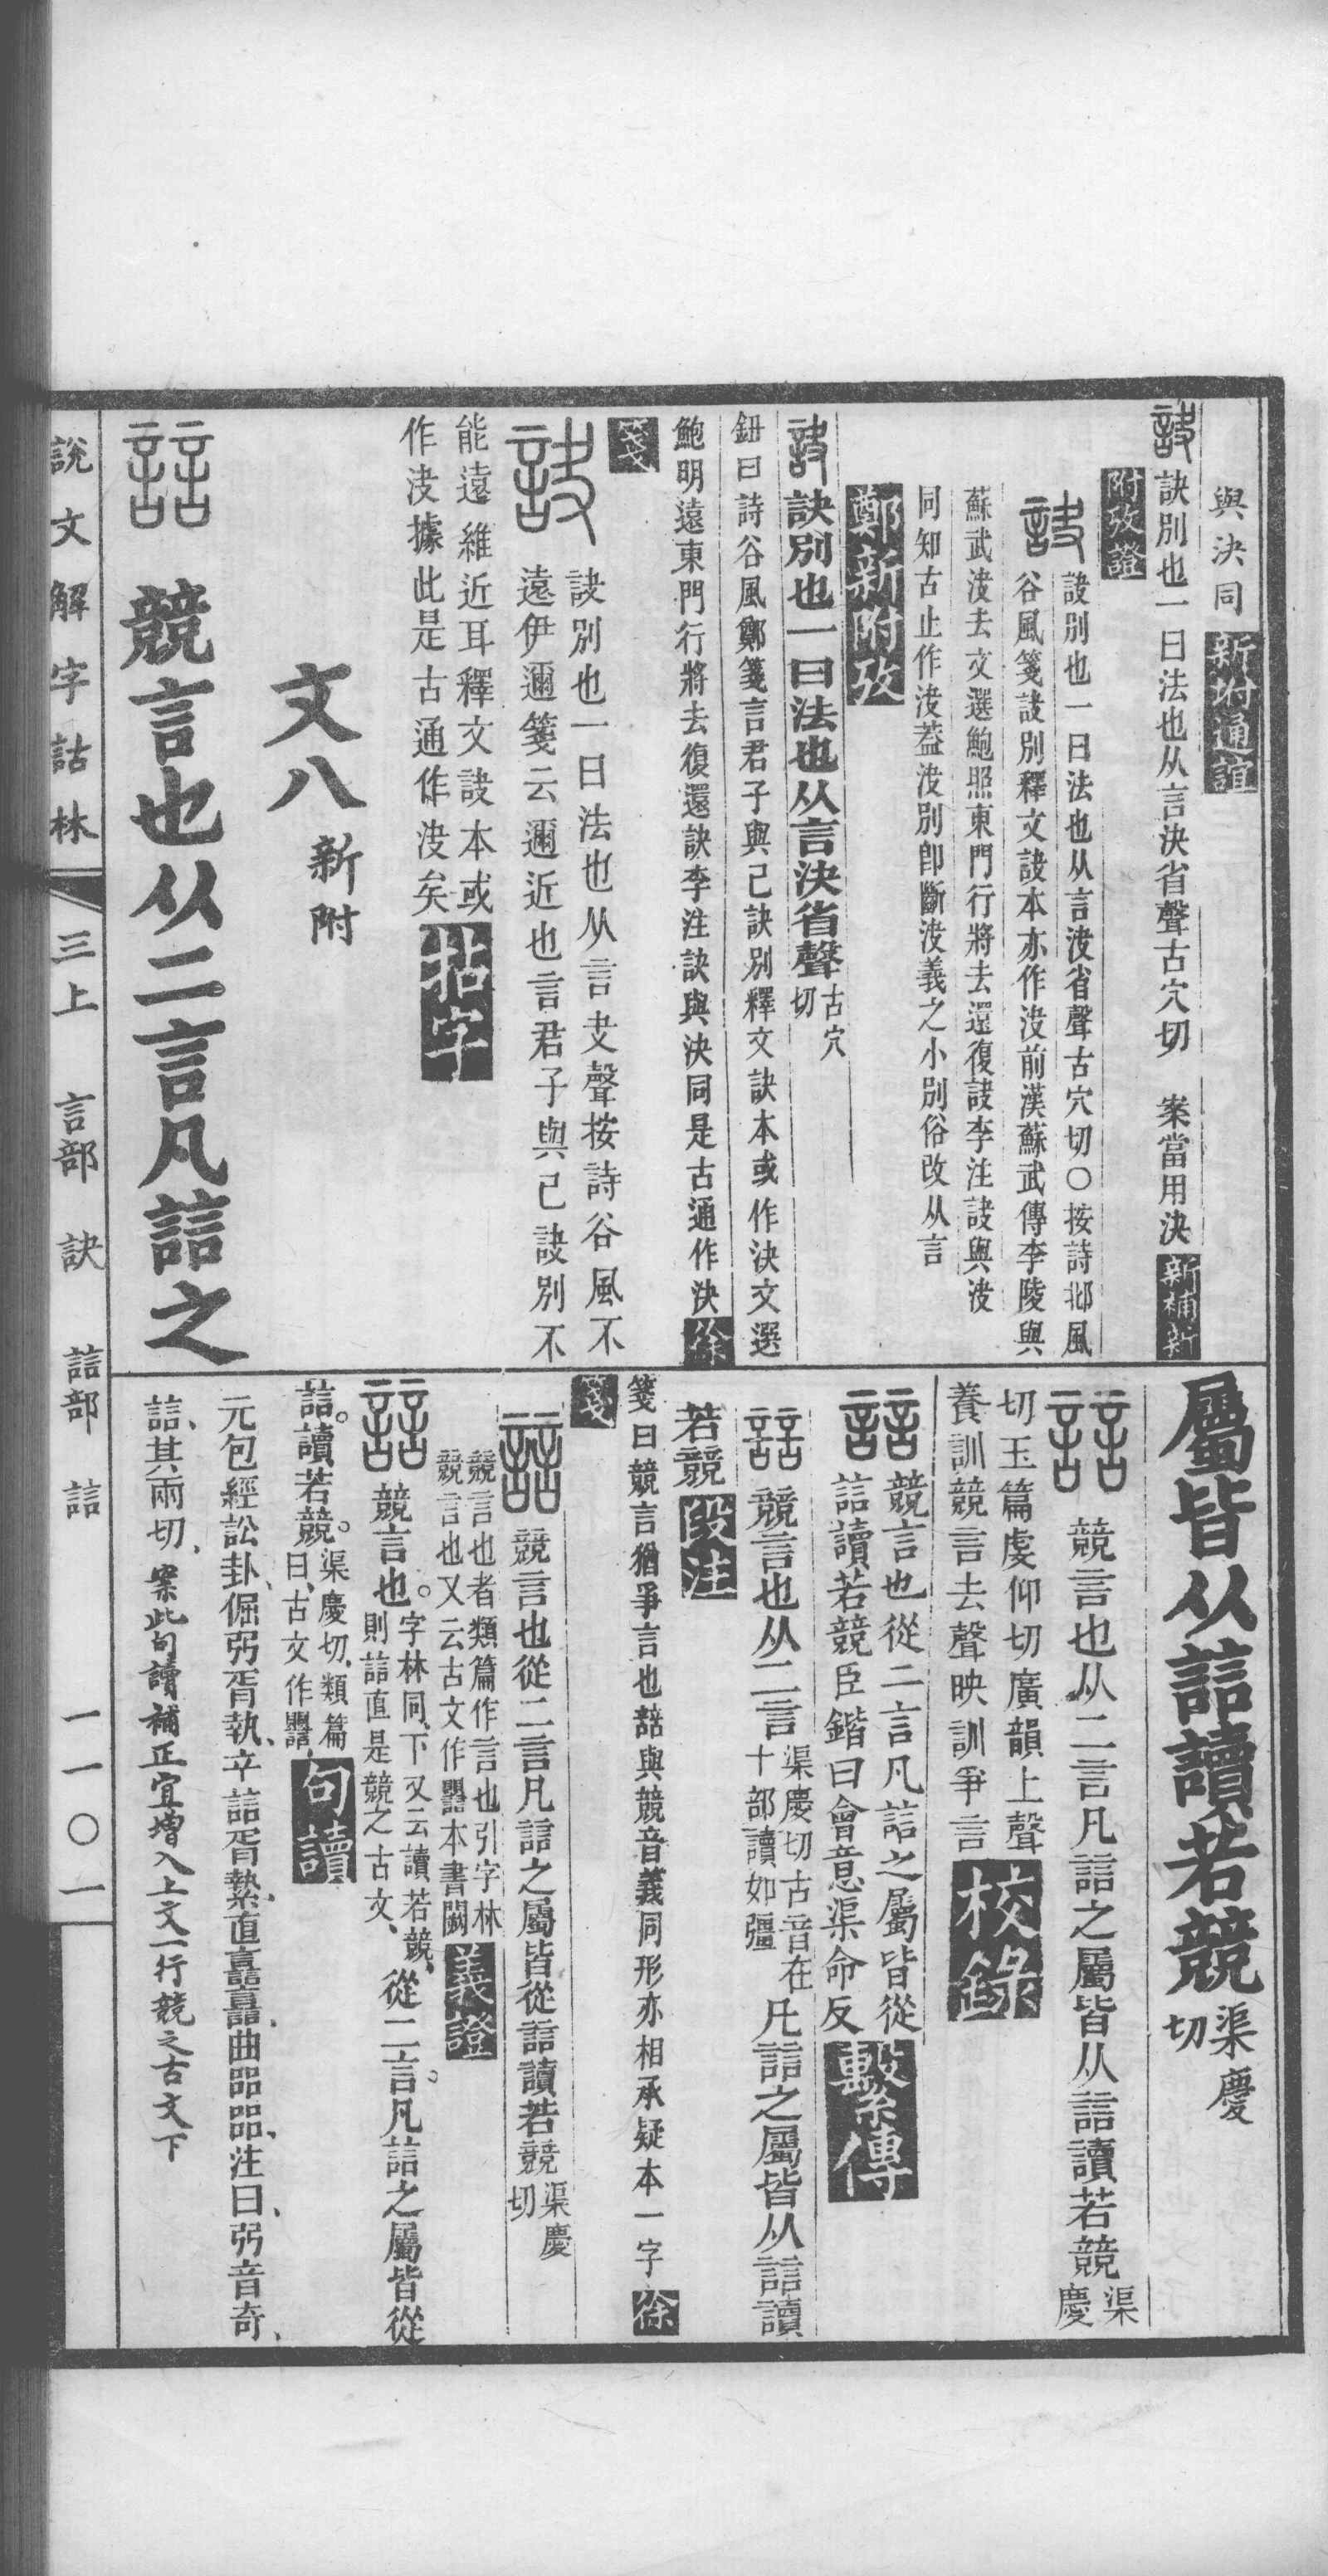 與決同 新坿通誼
訣 訣別也一曰法也从言決省聲古穴切 案當用決 新補新
附攷證
訣 訣別也一曰法也从言決省聲古穴切〇按詩邶風
谷風箋訣別釋文訣本亦作決前漢蘇武傳李陵與
蘇武決去文選鮑照東門行將去還復訣李注訣與決
同知古止作決葢決別卽斷決義之小別俗改从言
鄭新附攷
訣 訣別也一曰法也从言決省聲 古穴
切
鈕曰詩谷風鄭箋言君子與己訣別釋文訣本或作決文選
鮑明遠東門行將去復還訣李注訣與決同是古通作決 徐
箋
訣 訣別也一曰法也从言夬聲按詩谷風不
遠伊邇箋云邇近也言君子與己訣別不
能遠維近耳釋文訣本或
作決據此是古通作決矣 拈字
文八 新附
誩 競言也从二言凡誩之
屬皆从誩讀若競 渠慶
切
誩 競言也从二言凡誩之屬皆从誩讀若競 渠
慶
切玉篇虔仰切廣韻上聲
養訓競言去聲映訓爭言 校錄
誩 競言也從二言凡誩之屬皆從
誩讀若競臣鍇曰會意渠命反 繫傳
誩 競言也从二言 渠慶切古音在
十部讀如彊 凡誩之屬皆从誩讀
若競 段注
箋曰競言猶爭言也誩與競音義同形亦相承疑本一字 徐
箋
誩 競言也從二言凡誩之屬皆從誩讀若競 渠慶
切
競言也者類篇作言也引字林
競言也又云古文作𧮦本書闕 義證
誩 競言也。 字林同、下又云讀若競、
則誩直是競之古文、 從二言。凡誩之屬皆從
誩。讀若競。 渠慶切、類篇
曰、古文作𧮦、 句讀
元包經訟卦、倔弜胥執、䇂誩胥縶、直譶譶、曲㗊㗊、注曰、弜音奇、
誩、其兩切、案此句讀補正宜增入上文一行競之古文下
說文解字詁林 三上 言部 訣 誩部 誩 一一〇一